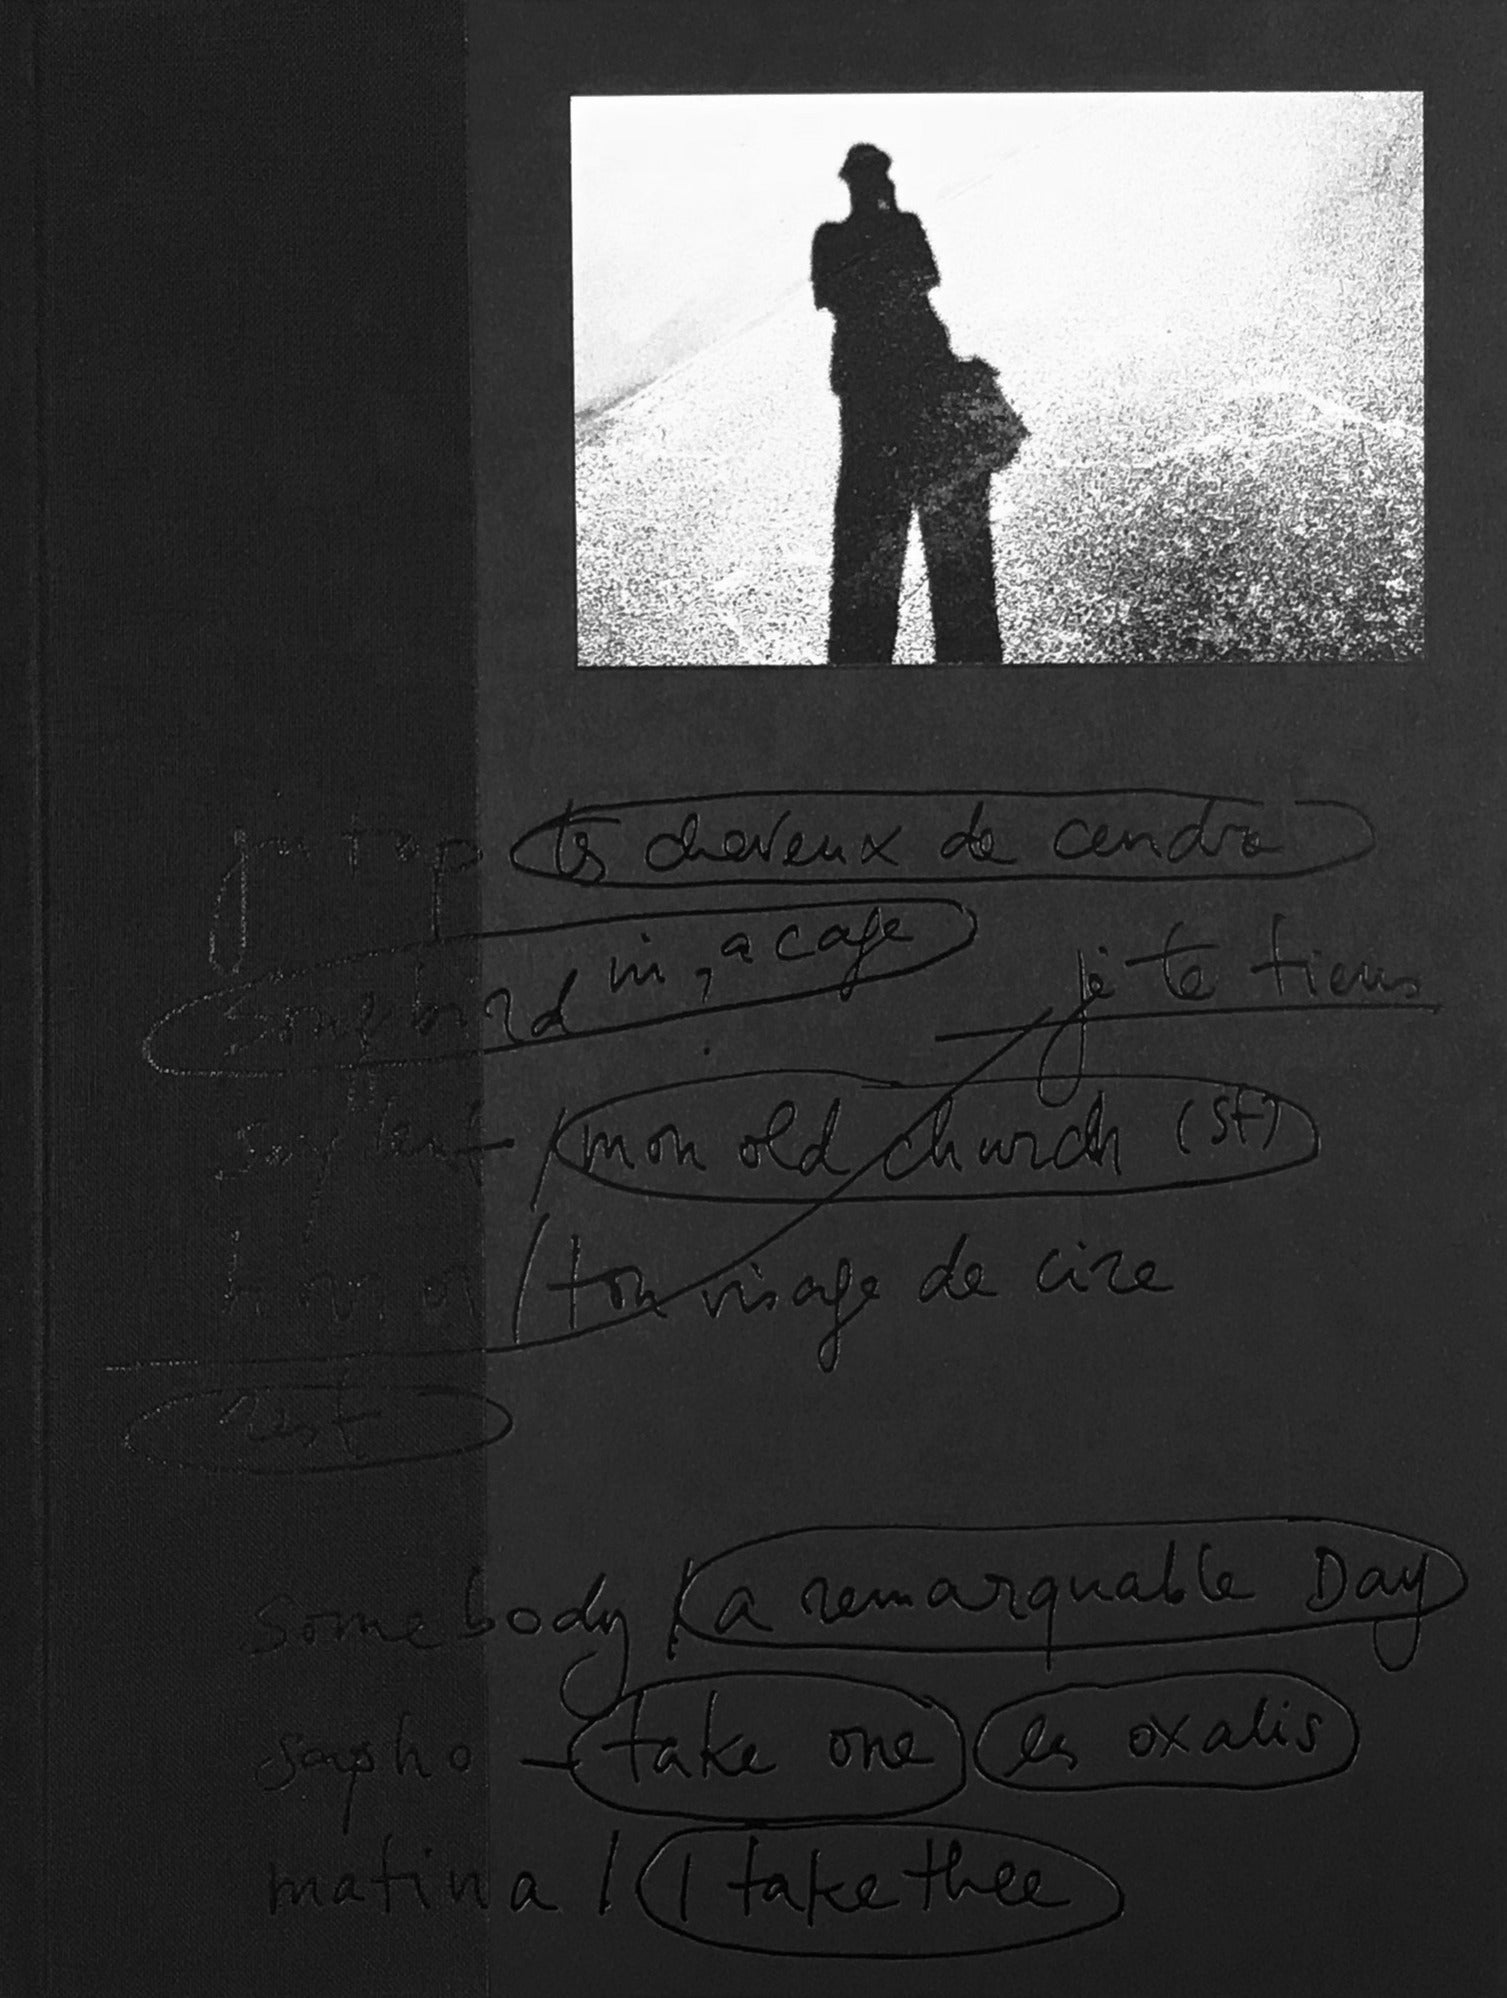 tes cheveux de cendre
song bird in, a cage
je te tiens
mon old church (st)
horror / ton visage de cire
rest
somebody / a remarquable Day
sapho – take one es oxalis
matina / I take thee